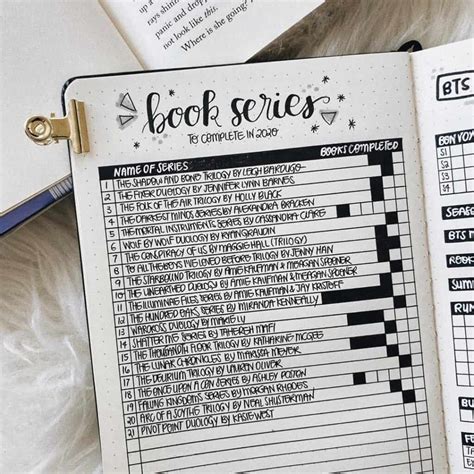 rays shining
panic and drop
not look like this.
Where is she going?
book series
TO COMPLETE IN 2020
NAME OF SERIES BOOKS COMPLETED
1 THE SHADOW AND BONE TRILOGY BY LEIGH BARDUGO
2 THE FIXER DUOLOGY BY JENNIFER LYNN BARNES
3 THE FOLK OF THE AIR TRILOGY BY HOLLY BLACK
4 THE DARKEST MINDS SERIES BY ALEXANDRA BRACKEN
5 THE MORTAL INSTRUMENTS SERIES BY CASSANDRA CLARE
6 WOLF BY WOLF DUOLOGY BY RYAN GRAUDIN
7 THE CONSPIRACY OF US BY MAGGIE HALL (TRILOGY)
8 TO ALL THE BOYS I'VE LOVED BEFORE TRILOGY BY JENNY HAN
9 THE STARBOUND TRILOGY BY AMIE KAUFMAN & MEAGAN SPOONER
10 THE UNEARTHED DUOLOGY BY AMIE KAUFMAN & MEAGAN SPOONER
11 THE ILLUMINAE FILES SERIES BY AMIE KAUFMAN & JAY KRISTOFF
12 THE HUNDRED OAKS SERIES BY MIRANDA KENNEALLY
13 WARCROSS DUOLOGY BY MARIE LU
14 SHATTER ME SERIES BY TAHEREH MAFI
15 THE THOUSANDTH FLOOR TRILOGY BY KATHARINE MCGEE
16 THE LUNAR CHRONICLES BY MARISSA MEYER
17 THE DELIRIUM TRILOGY BY LAUREN OLIVER
18 THE ONCE UPON A CON SERIES BY ASHLEY POSTON
19 FALLING KINGDOMS SERIES BY MORGAN RHODES
20 ARC OF A SCYTHE TRILOGY BY NEAL SHUSTERMAN
21 PIVOT POINT DUOLOGY BY KASIE WEST
BTS
BON VOYA
S1
S2
S3
S4
RUN
BTS